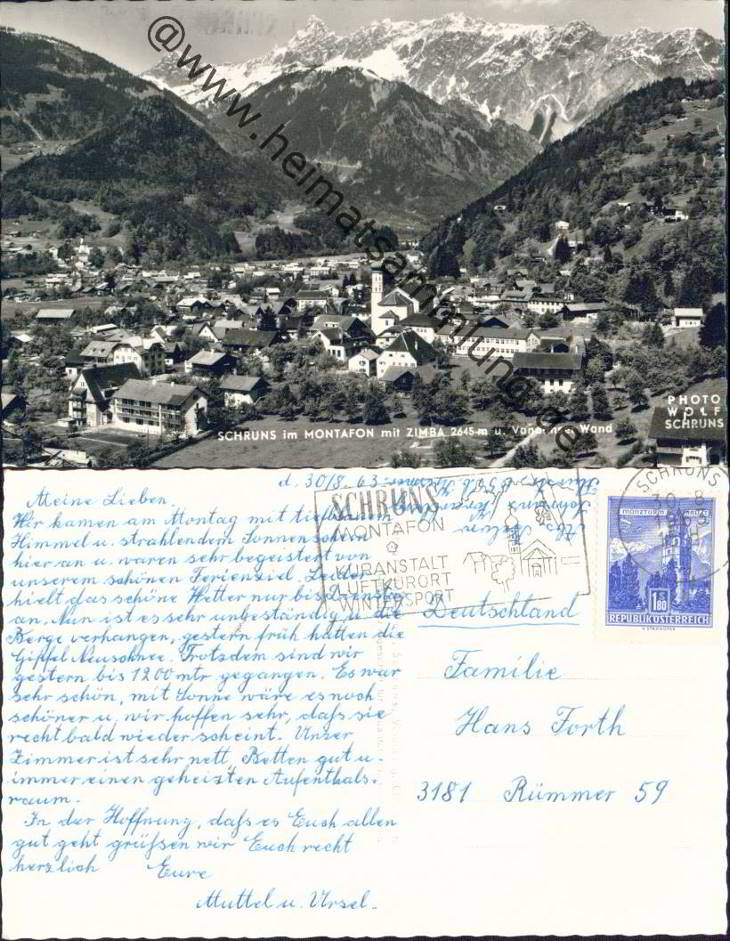 @www.heimatsammlung.de
SCHRUNS im MONTAFON mit ZIMBA 2645 m u. Wand
PHOTO
WOLF
SCHRUNS
d. 30/8. 63
Meine Lieben,
Wir kamen am Montag mit
Himmel u. strahlendem
hier an u. waren sehr begeistert von
unserem schönen Ferienziel. Leider
hielt das schöne Wetter nur bis
an. Nun ist es sehr unbeständig u. die
Berge verhangen, gestern früh hatten die
Gipfel Neuschnee. Trotzdem sind wir
gestern bis 1200 mtr gegangen. Es war
sehr schön, mit Sonne wäre es noch
schöner u. wir hoffen sehr, daß sie
recht bald wieder scheint. Unser
Zimmer ist sehr nett, Betten gut u.
immer einen geheizten Aufenthals-
raum.
In der Hoffnung, daß es Euch allen
gut geht grüßen wir Euch recht
herzlich Eure
Muttel u. Ursel.
SCHRUNS
MONTAFON
KURANSTALT
LUFTKURORT
WINTERSPORT
SCHRUNS
30. 8
1.80
REPUBLIK ÖSTERREICH
Deutschland
Familie
Hans Forth
3181 Rümmer 59